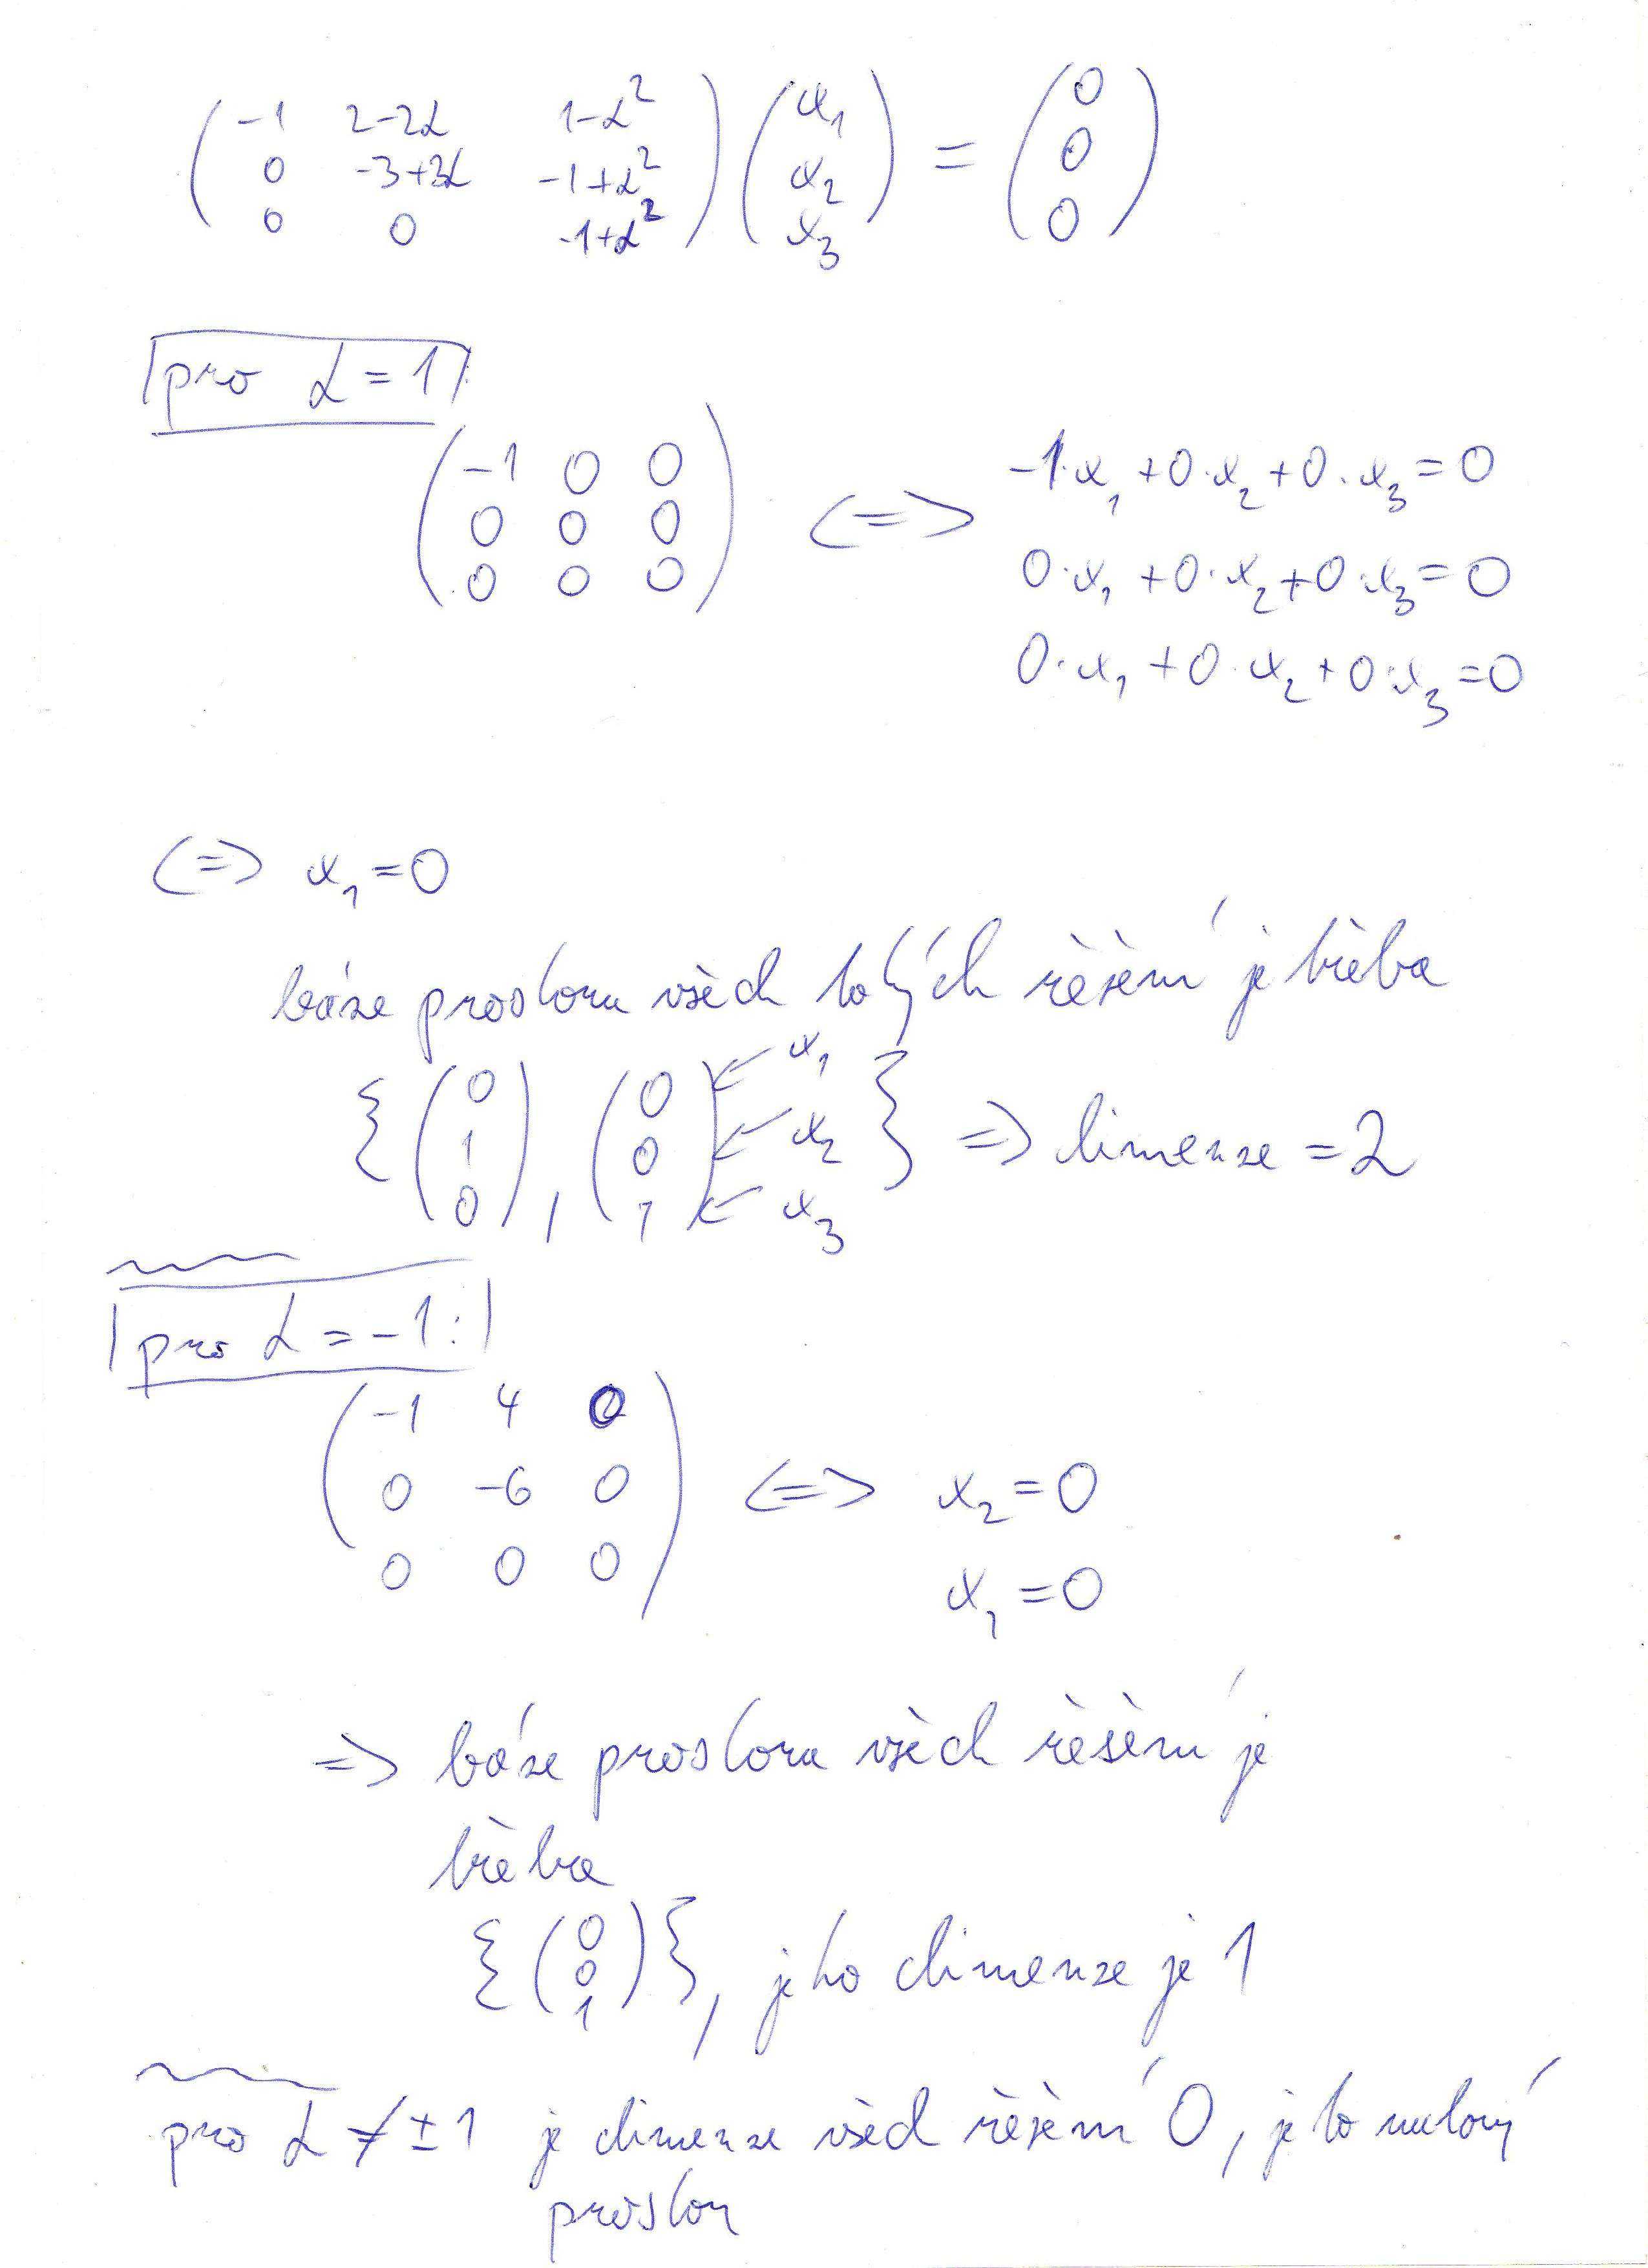 ( -1 2-2α 1-α² ) ( x₁ ) = ( 0 )
( 0 -3+3α -1+α² ) ( x₂ ) ( 0 )
( 0 0 -1+α² ) ( x₃ ) ( 0 )
pro α = 1:
( -1 0 0 ) <=> -1·x₁ + 0·x₂ + 0·x₃ = 0
( 0 0 0 ) 0·x₁ + 0·x₂ + 0·x₃ = 0
( 0 0 0 ) 0·x₁ + 0·x₂ + 0·x₃ = 0
<=> x₁ = 0
báze prostoru všech takých řešení je třeba
{ ( 0 ) , ( 0 ) ← x₁ }
( 1 ) ( 0 ) ← x₂ => dimenze = 2
( 0 ) ( 1 ) ← x₃
pro α = -1:
( -1 4 0 )
( 0 -6 0 ) <=> x₂ = 0
( 0 0 0 ) x₁ = 0
=> báze prostoru všech řešení je
třeba
{ ( 0 0 1 ) }, jeho dimenze je 1
pro α ≠ ±1 je dimenze všech řešení 0, je to nulový
prostor